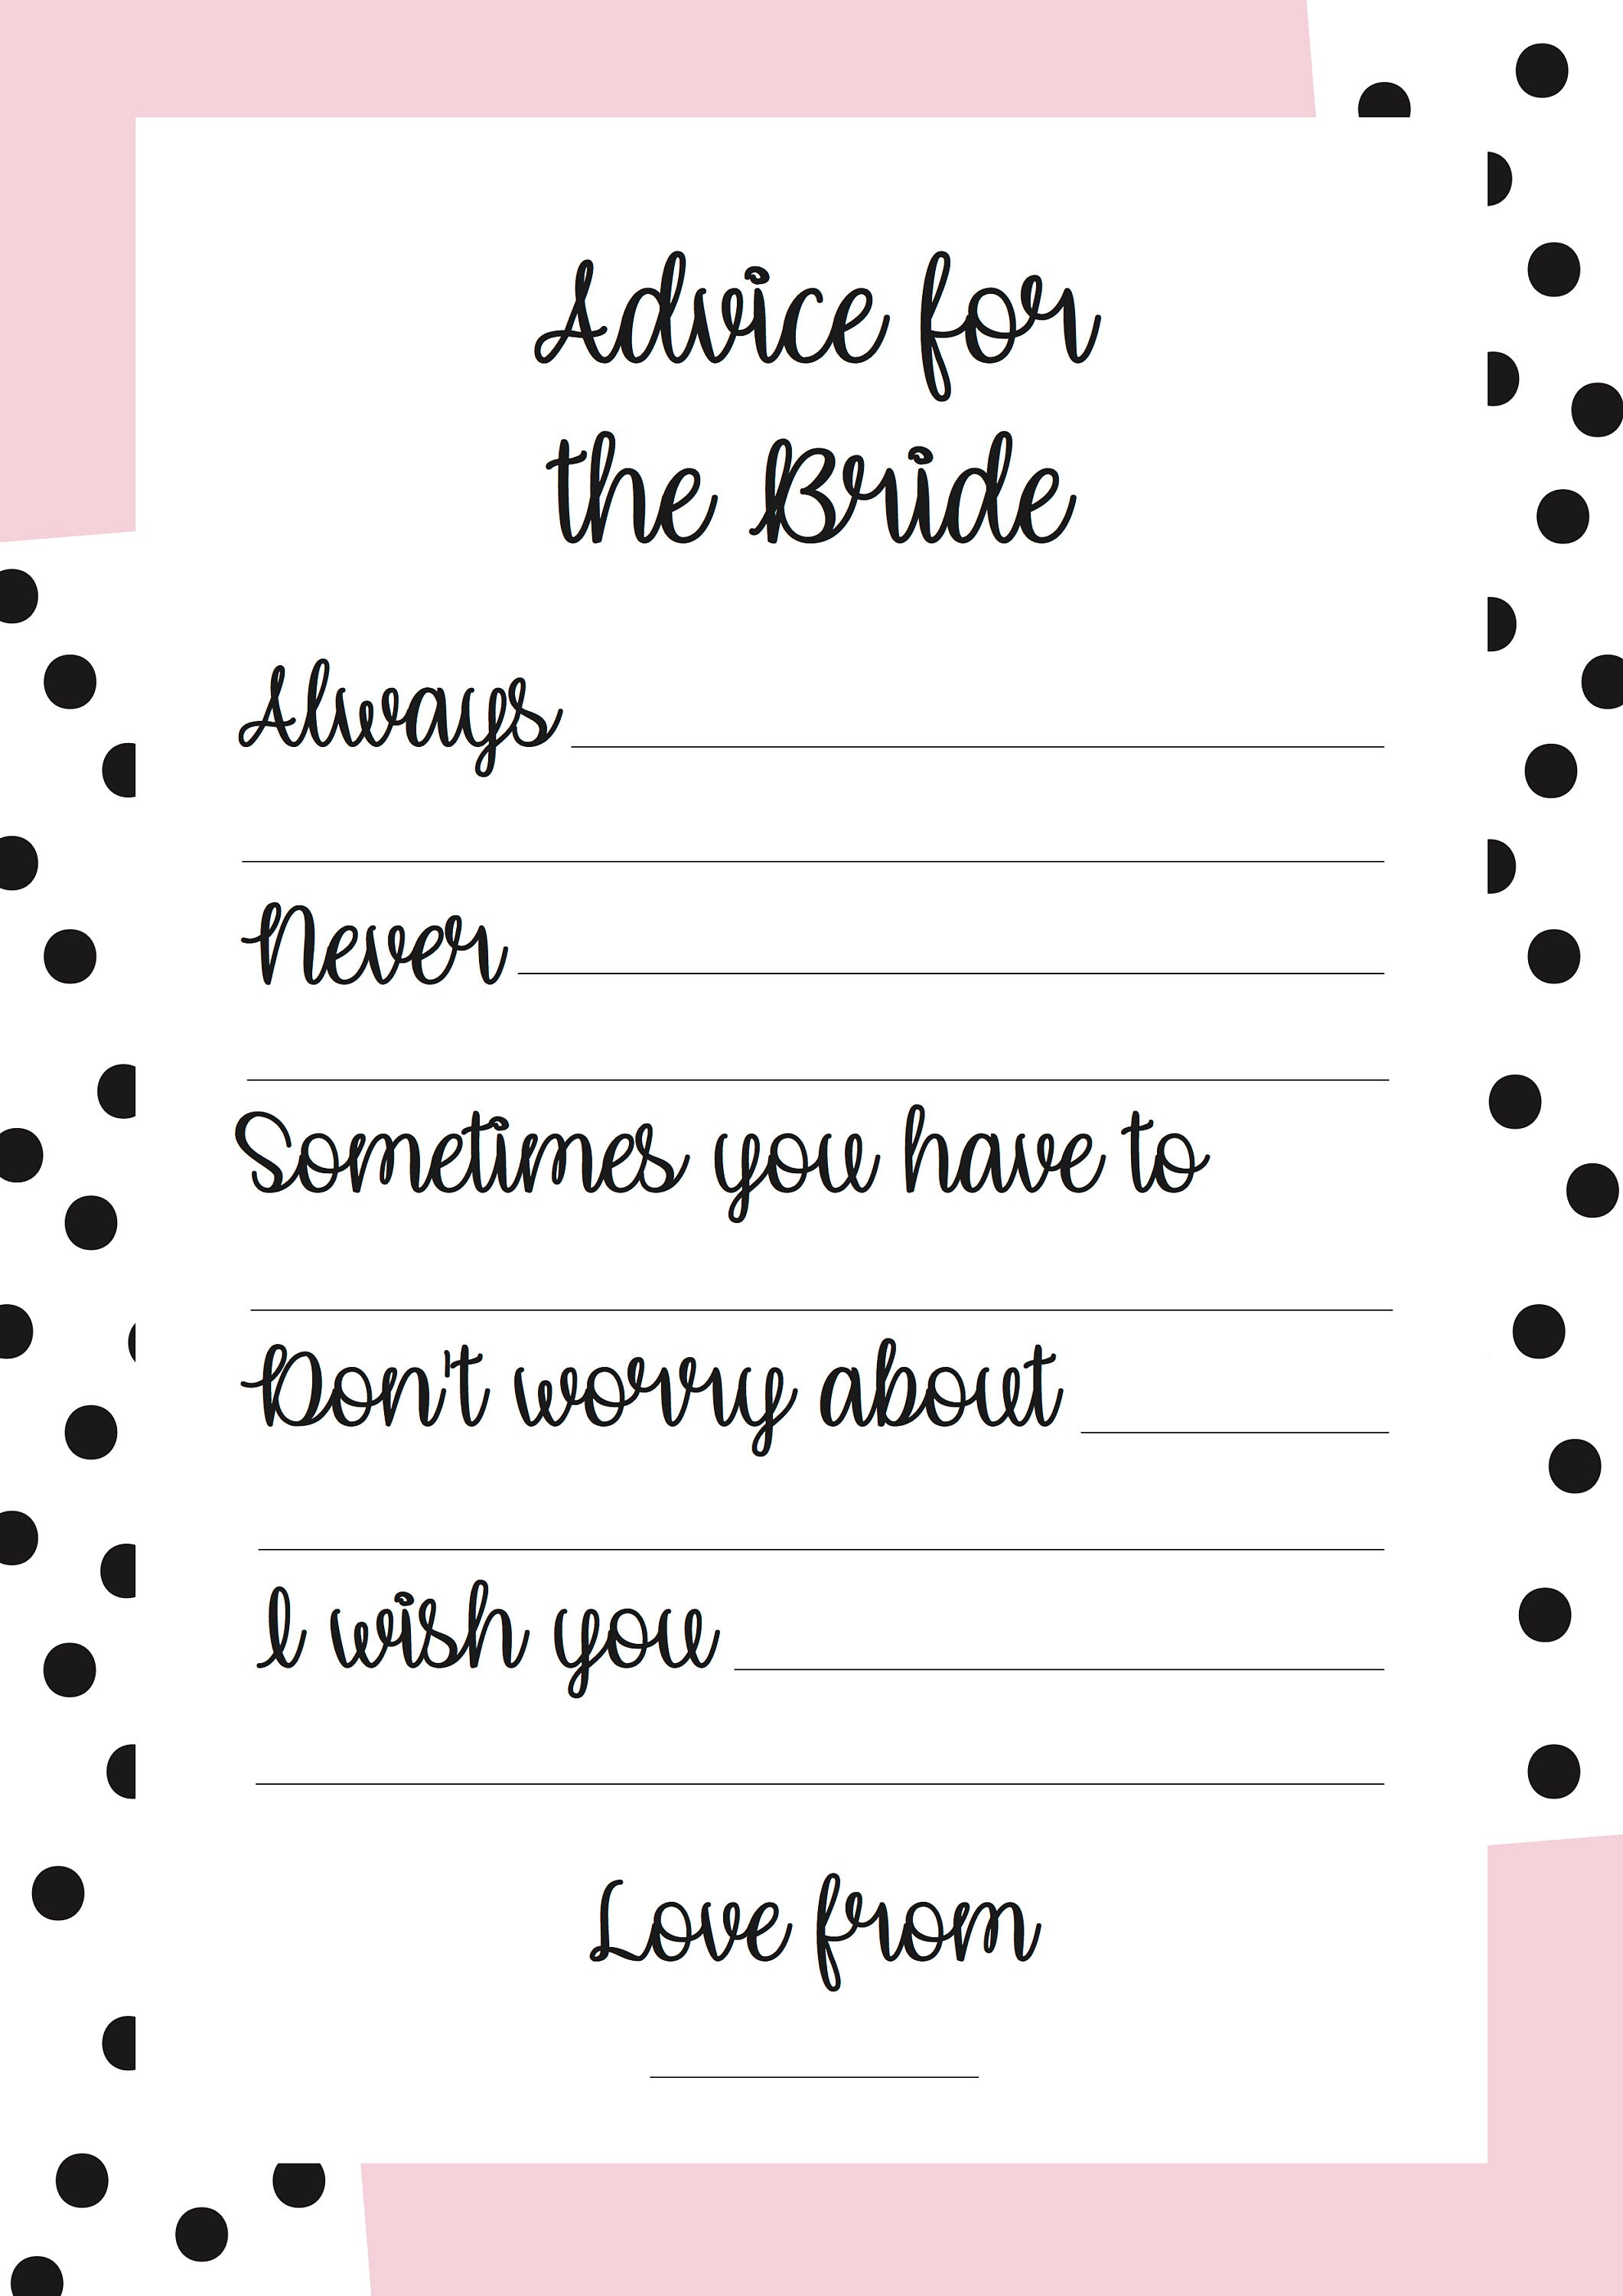 Advice for
the Bride
Always
Never
Sometimes you have to
Don't worry about
I wish you
Love from